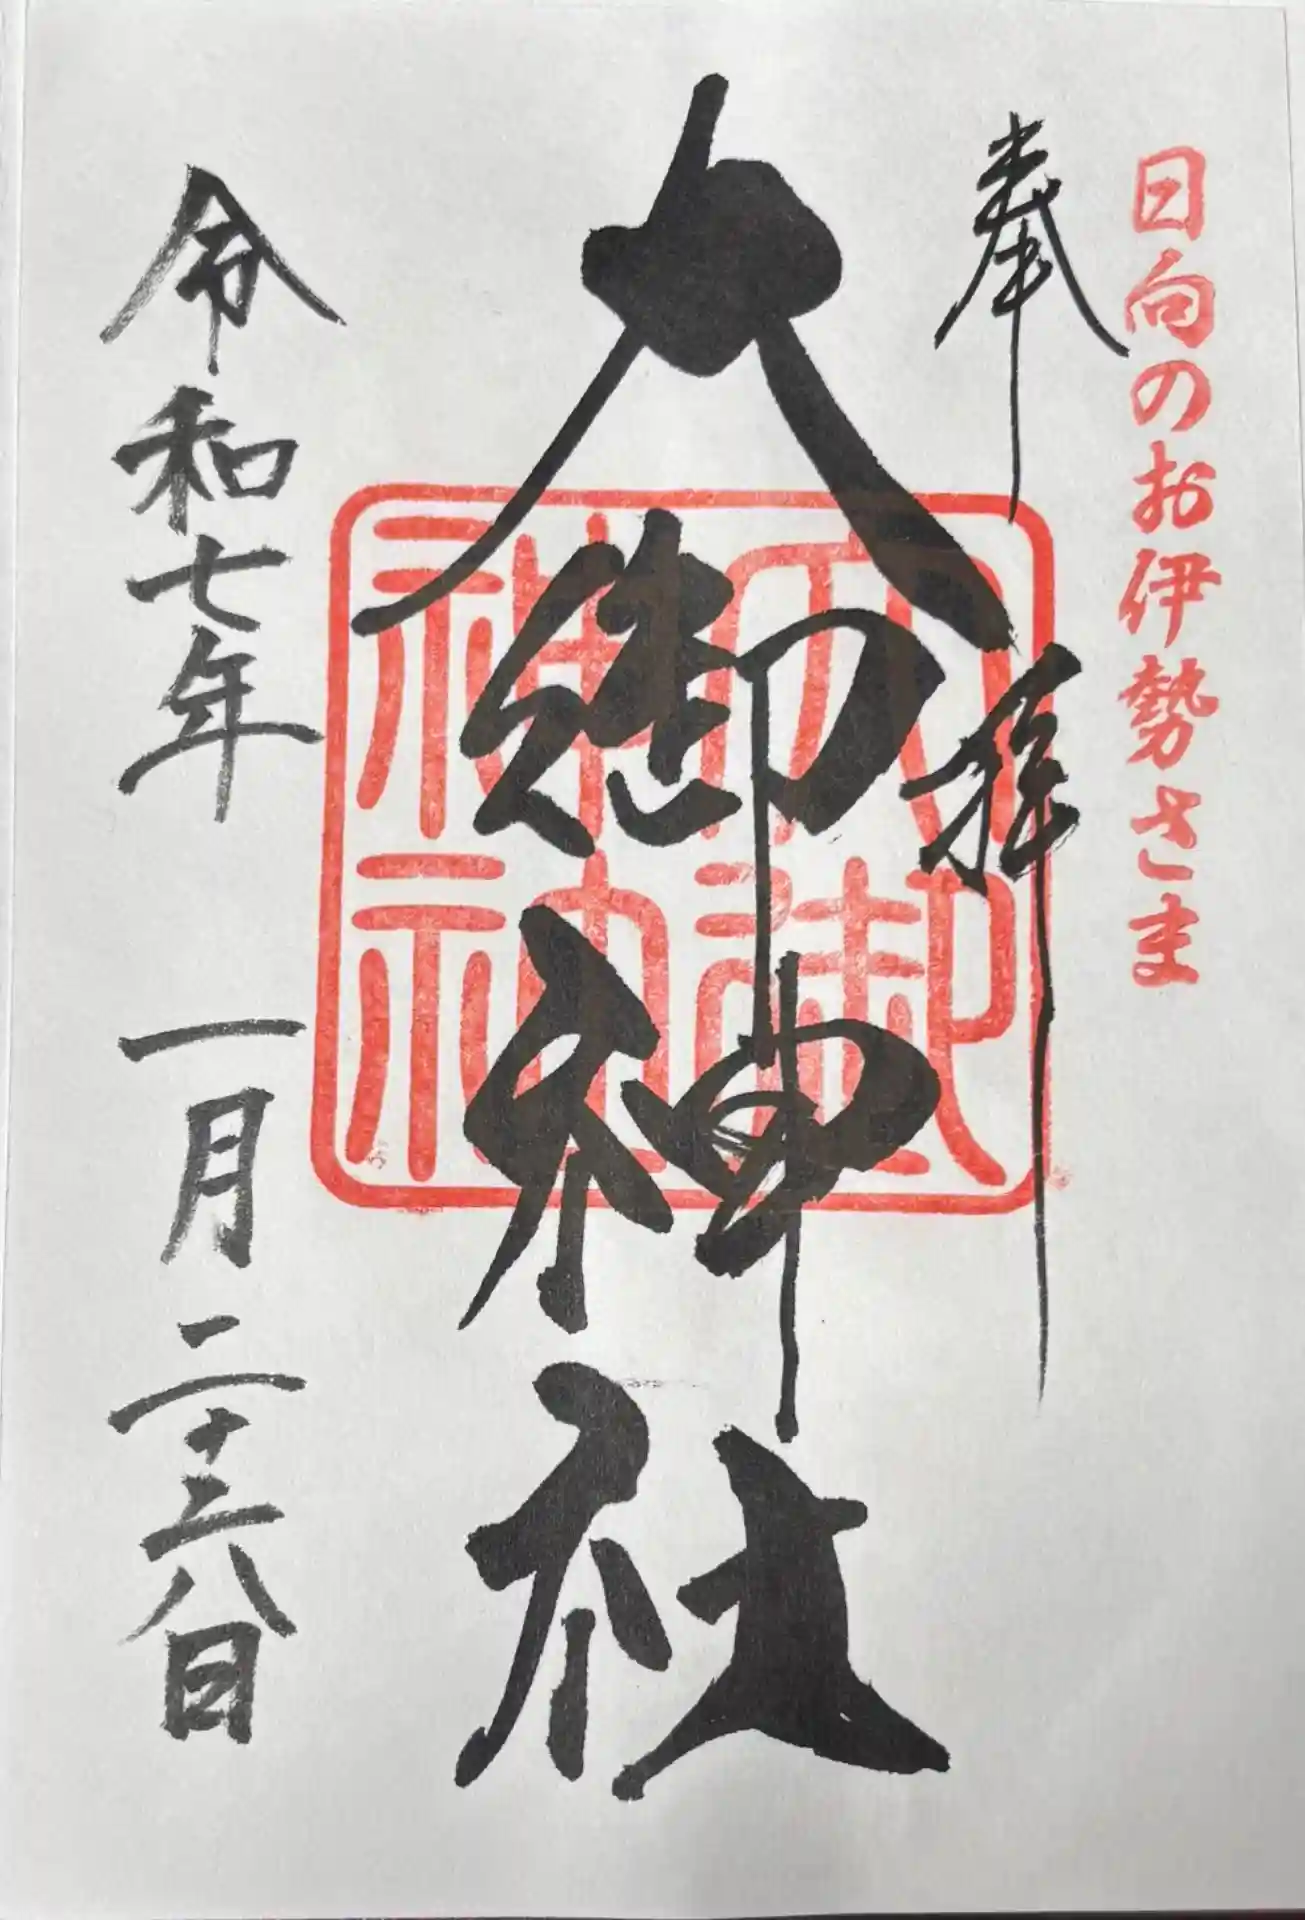 日向のお伊勢さま
奉拝
大御神社
大御神社
令和七年 一月二十三八日